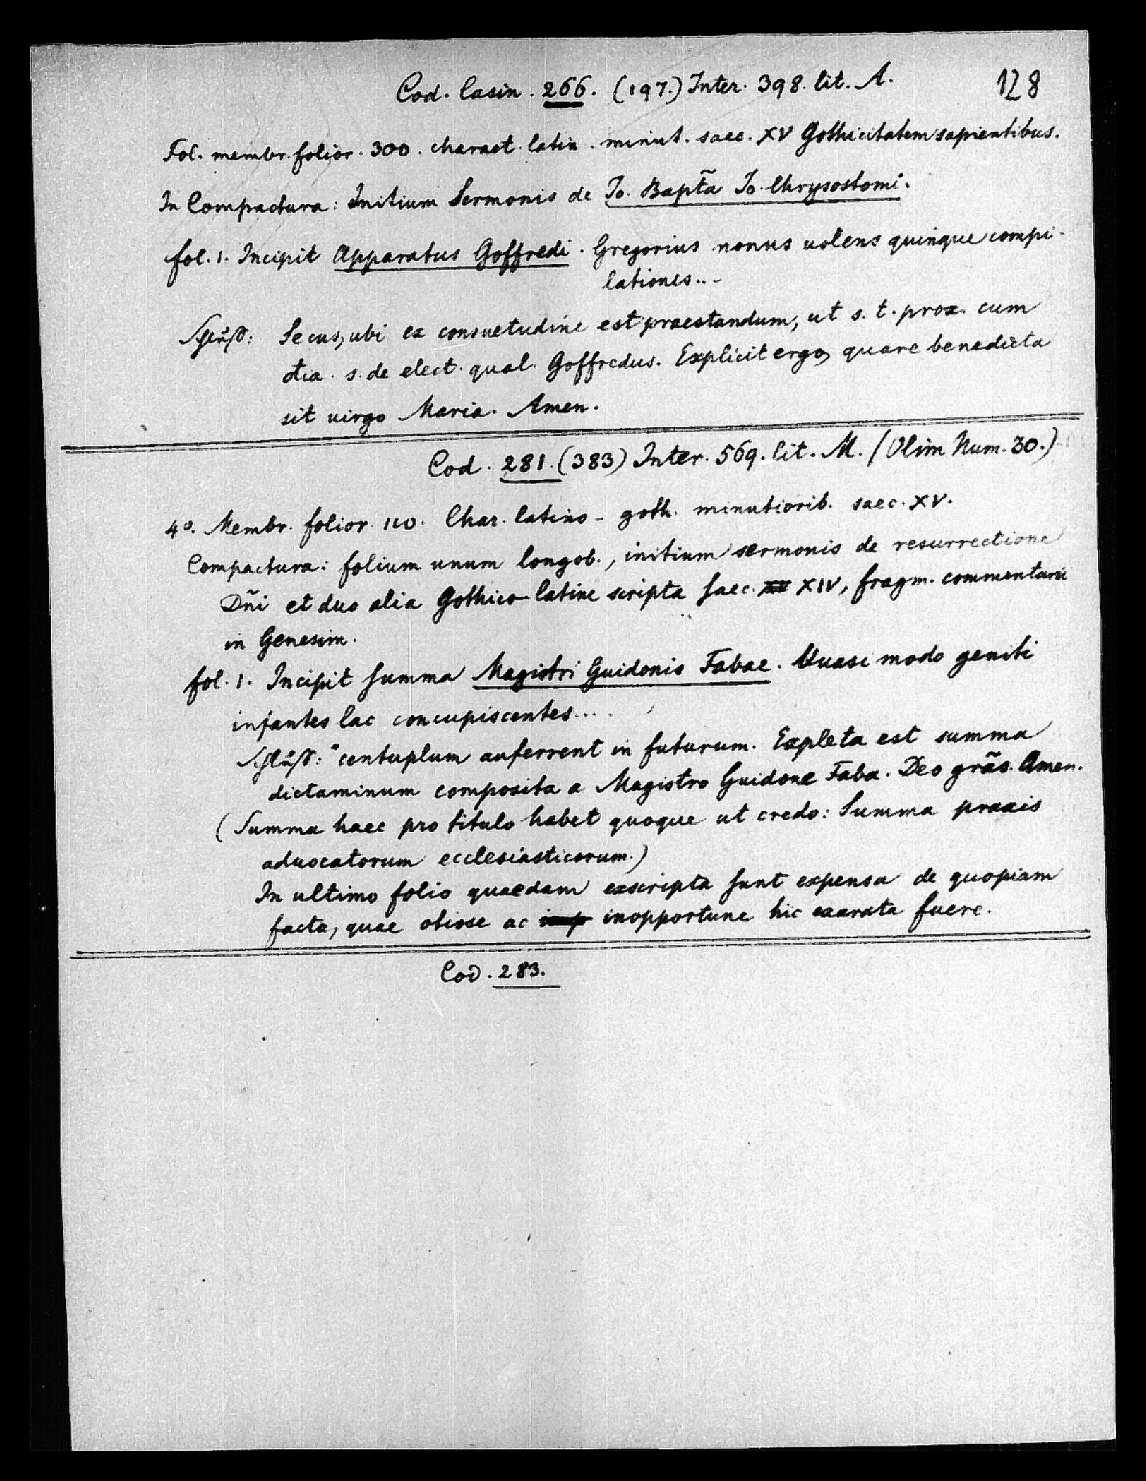 Cod. Casin. 266. (197.) Inter. 398. lit. A.
128
Fol. membr. folior. 300. charact. latin. minut. saec. XV Gothicitatem sapientibus.
In Compactura: Initium Sermonis de Jo. Bapt̃a Jo. Chrysostomi.
fol. 1. Incipit Apparatus Goffredi. Gregorius nonus uolens quinque compi-
lationes...
Schluß: Secus, ubi ex consuetudine est praestandum, ut s. t. prox. cum
dia. s. de elect. qual. Goffredus. Explicit ergo, quare benedicta
sit uirgo Maria. Amen.
Cod. 281. (383) Inter. 569. lit. M. (Olim Num. 30.)
4º. Membr. folior. 110. Char. latino-goth. minutiorib. saec. XV.
Compactura: folium unum longob., initium sermonis de resurrectione
Dñi et duo alia Gothico-latine scripta saec. XIV, fragm. commentarii
in Genesim.
fol. 1. Incipit Summa Magistri Guidonis Fabae. Quasi modo geniti
infantes lac concupiscentes...
Schluß: "centuplum auferrent in futurum. Expleta est summa
dictaminum composita a Magistro Guidone Faba. Deo grãs. Amen.
(Summa haec pro titulo habet quoque ut credo: Summa praxis
aduocatorum ecclesiasticorum.)
In ultimo folio quaedam exscripta sunt expensa de quopiam
facta, quae otiose ac inopportune hic exarata fuere.
Cod. 283.